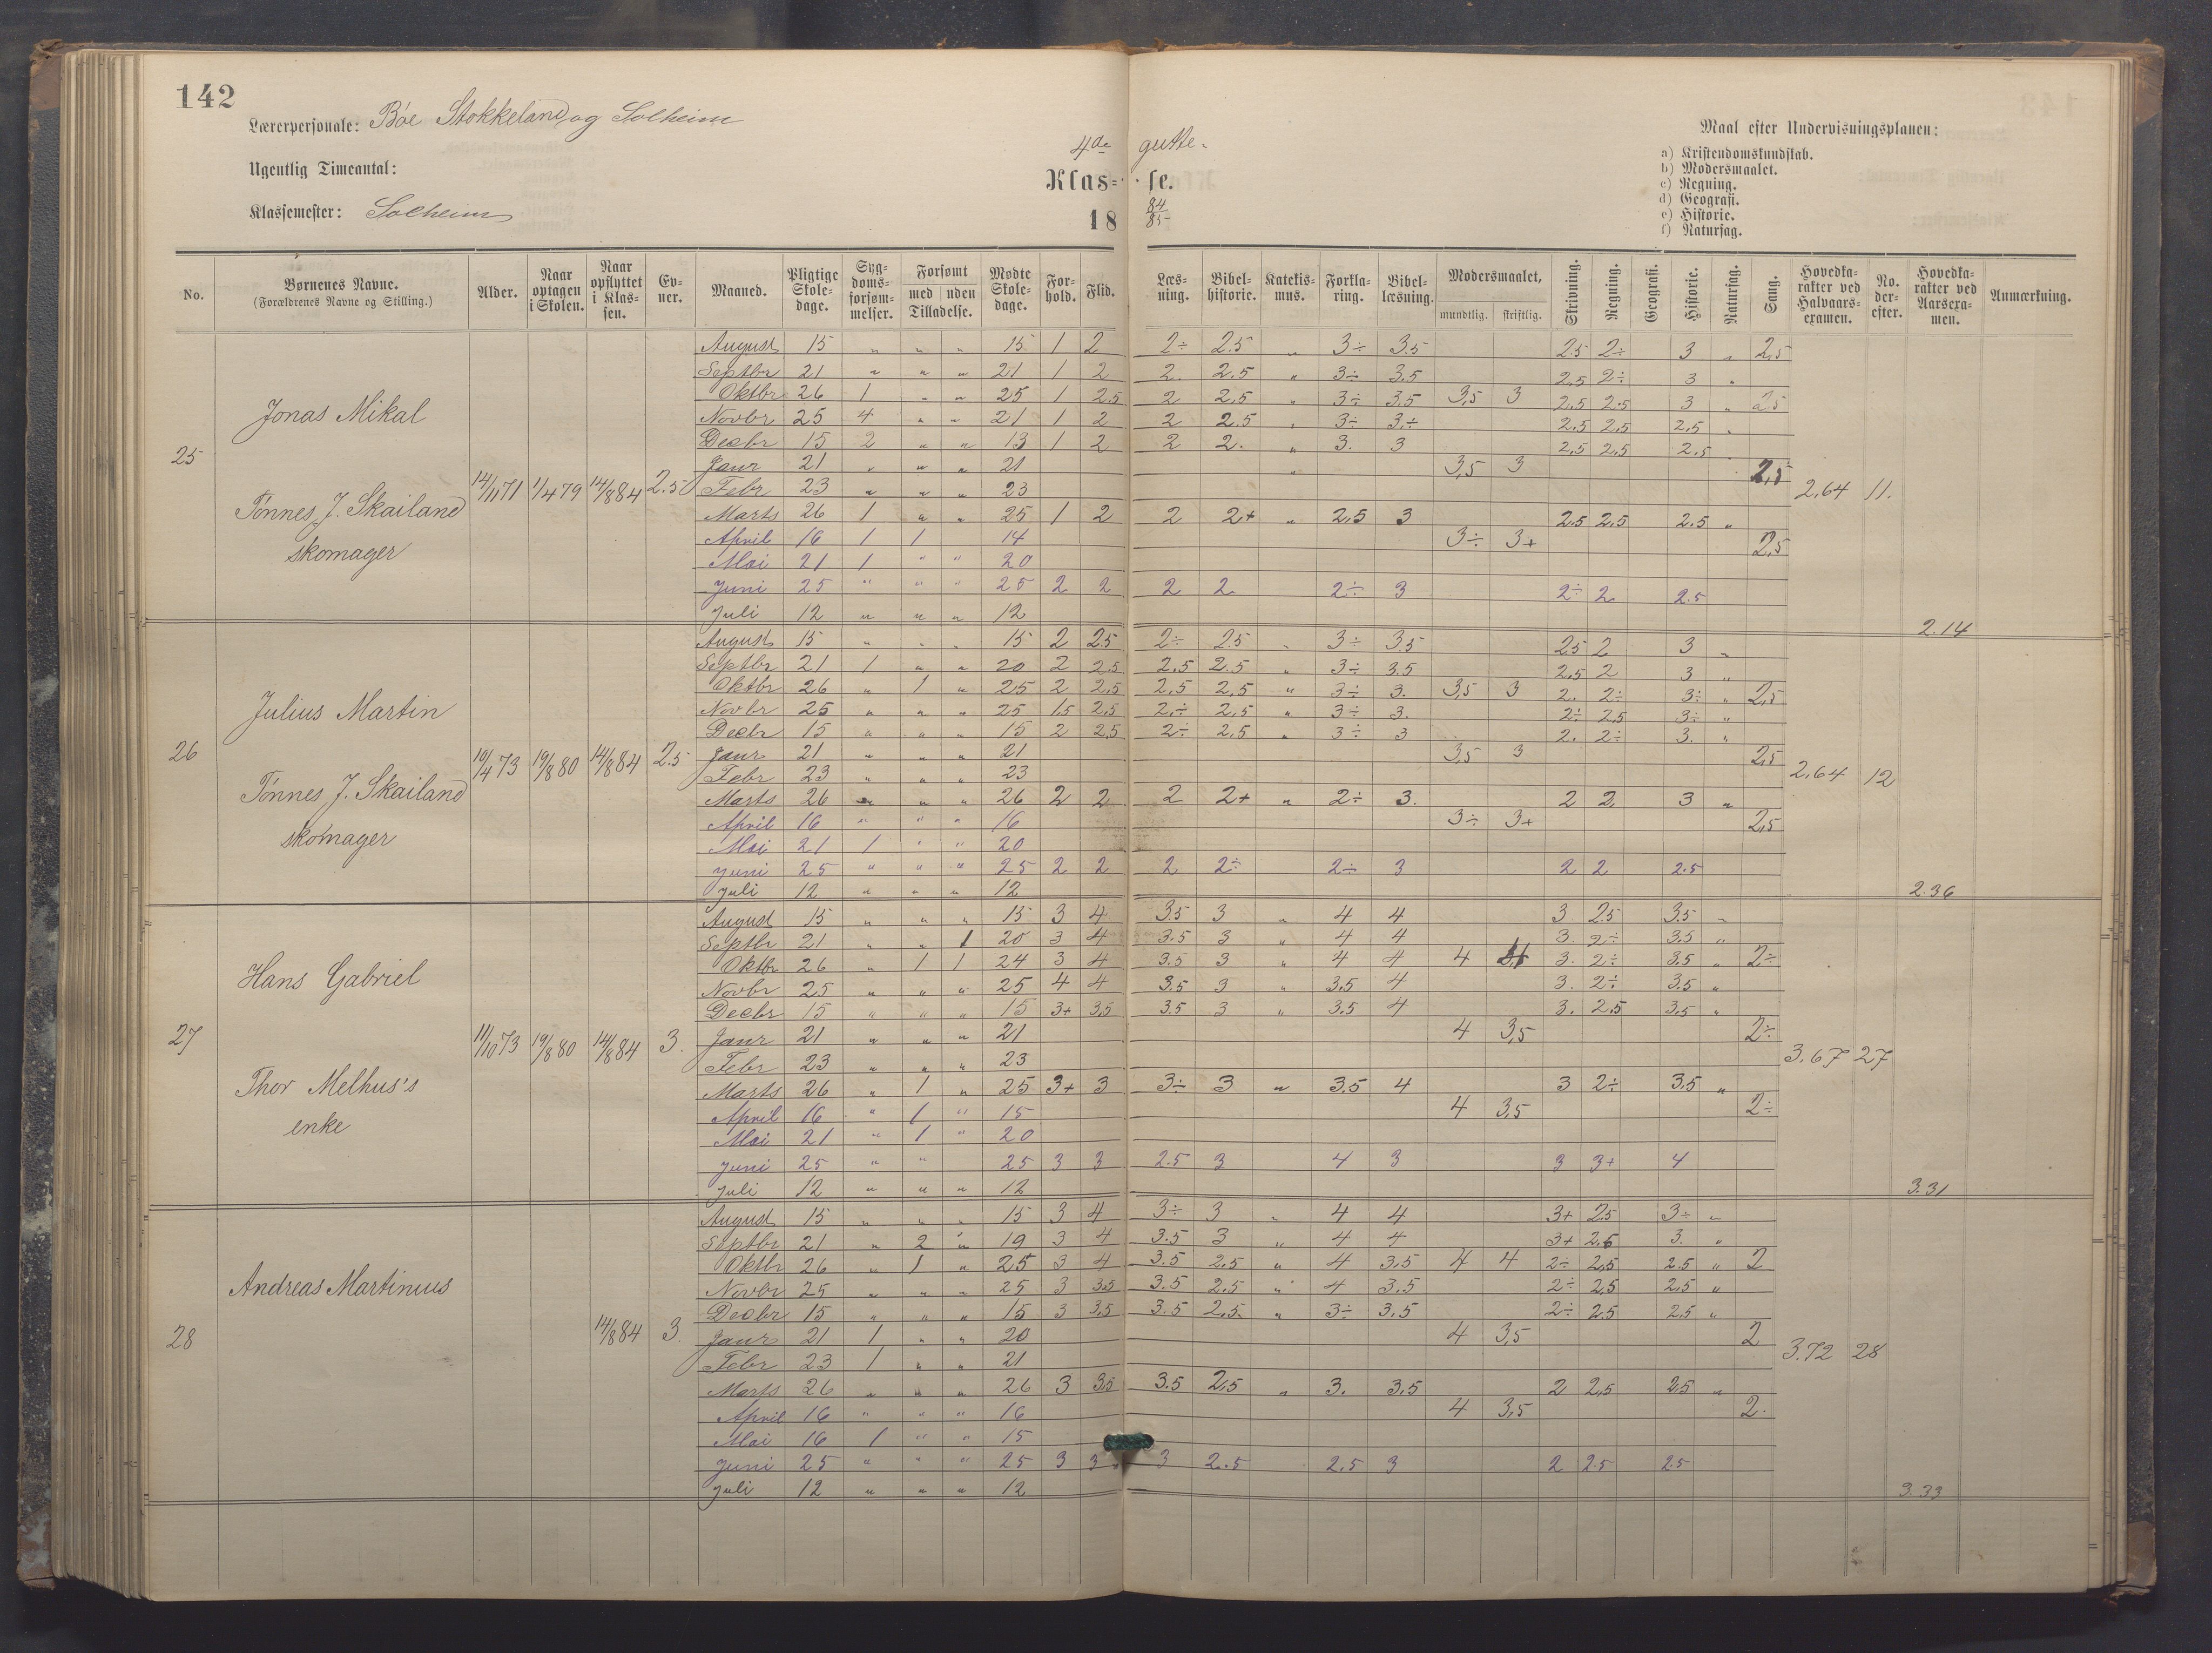 142
Lærerpersonale: Bóe Stokkeland og Solheim
Ugentlig Timeantal:
Klassemester: Solheim
4de gutte-
Klas- se.
18 84/85
Maal efter Undervisningsplanen:
a) Kristendomskundskab.
b) Modersmaalet.
c) Regning.
d) Geografi.
e) Historie.
f) Naturfag.
No. Børnenes Navne. (Forældrenes Navne og Stilling.) Alder. Naar optagen i Skolen. Naar opflyttet i Klassen. Evner. Maaned. Pligtige Skoledage. Sygdomsforsømmelser. Forsømt med uden Tilladelse. Mødte Skoledage. Forhold. Flid. Læsning. Bibelhistorie. Katekismus. Forklaring. Bibellæsning. Modersmaalet, mundtlig. skriftlig. Skrivning. Regning. Geografi. Historie. Naturfag. Sang. Hovedkarakter ved Halvaarsexamen. No. derefter. Hovedkarakter ved Aarsexamen. Anmærkning.
25 Jonas Mikal
Tónnes J. Skailand
skomager
14/11 71 1/4 79 14/8 84 2.5
August 15 " " " 15 1 2 2÷ 2.5 " 3÷ 3.5 2.5 2÷ 3 " 2,5
Septbr 21 " " " 21 1 2 2. 2.5 " 3÷ 3.5 2,5 2÷ 3 "
Oktbr 26 1 " " 25 1 2.5 2 2,5 " 3÷ 3.5 3,5 3 2,5 2.5 3 " 2.5
Novbr 25 4 " " 21 1 2 2 2.5 " 3÷ 3÷ 2.5 2,5 2,5 "
Decbr 15 2 " " 13 1 2 2 2. " 3. 3 2,5 2,5 2.5
Janr 21 " " " 21 " 3,5 3 2,5
Febr 23 " " " 23
Marts 26 1 " " 25 1 2 2 2+ " 2,5 3 2.5 2,5 2.5 "
April 16 1 1 14 3÷ 3+ 2,5
Mai 21 1 " " 20
Juni 25 " " " 25 2 2 2 2 2÷ 3 2÷ 2 2.5
Juli 12 " " " 12
2,64 11.
2.14
26 Julius Martin
Tónnes J. Skailand
skomager
10/4 73 19/8 80 14/8 84 2.5
August 15 " " " 15 2 2.5 2÷ 2.5 " 3÷ 3.5 2.5 2 3 "
Septbr 21 1 " " 20 2 2,5 2,5 2.5 " 3÷ 3.5 2,5 2 3 "
Oktbr 26 " 1 " 25 2 2,5 2,5 2,5 " 3÷ 3. 3,5 3 2. 2÷ 3÷ " 2,5
Novbr 25 " " " 25 1,5 2,5 2÷ 2,5 " 3÷ 3. 2÷ 2,5 3÷ "
Decbr 15 " " " 15 2 2,5 2÷ 2,5 " 3÷ 3 2. 2÷ 3. "
Janr 21 " " " 21 3,5 3 2,5
Febr 23 " " " 23
Marts 26 " " " 26 2 2 2 2+ " 2÷ 3. 2 2 3 "
April 16 " " " 16 3÷ 3+ 2,5
Mai 21 1 " " 20
Juni 25 " " " 25 2 2 2 2÷ 2÷ 3 2 2 2.5
Juli 12 " " " 12
2,64 12
2.36
27 Hans Gabriel
Thor Melhus's
enke
11/10 73 19/8 80 14/8 84 3.
August 15 " " " 15 3 4 3.5 3 " 4 4 3 2.5 3.5 "
Septbr 21 " " 1 20 3 4 3.5 3 " 4 4 3. 2÷ 3.5 "
Oktbr 26 " 1 1 24 3 4 3.5 3 " 4 4 4 3. 2÷ 3.5 " 2÷
Novbr 25 " " " 25 4 4 3.5 3 " 3.5 4 3. 2÷ 3.5 "
Decbr 15 " " " 15 3+ 3,5 3.5 3 3.5 4 3. 2,5 3,5 "
Janr 21 " " " 21 4 3,5 2÷
Febr 23 " " " 23
Marts 26 " 1 " 25 3+ 3 3÷ 3 " 3.5 4 3 2÷ 3,5 "
April 16 " 1 " 15 4 3,5 2÷
Mai 21 " 1 " 20
Juni 25 " " 25 3 3 2.5 3 4 3 3 3+ 4
Juli 12 " " " 12
3.67 27
3.31
28 Andreas Martinius
14/8 84 3.
August 15 " " " 15 3 4 3÷ 3 " 4 4 3+ 2,5 3÷ "
Septbr 21 " 2 " 19 3 4 3.5 3 " 4 4 3+ 2.5 3. "
Oktbr 26 " 1 " 25 3 4 3.5 2,5 " 4 3,5 4 4 2÷ 2,5 2.5 " 2
Novbr 25 " " " 25 3 3,5 3.5 2.5 " 4 3.5 2÷ 2,5 2,5 "
Decbr 15 " " " 15 3 3,5 3.5 2,5 " 3÷ 3.5 2÷ 2.5 2,5 "
Janr 21 1 " " 20 4 3,5 2
Febr 23 1 " " 21
Marts 26 " " " 26 3 3,5 3.5 2,5 " 3. 3,5 2 2,5 2,5 "
April 16 " " " 16 4 3,5 2.
Mai 16 1 " " 15
Juni 25 " " " 25 3 3 3 2.5 2.5 3 2 2.5 2.5
Juli 12 " " " 12
3.72 28
3.33